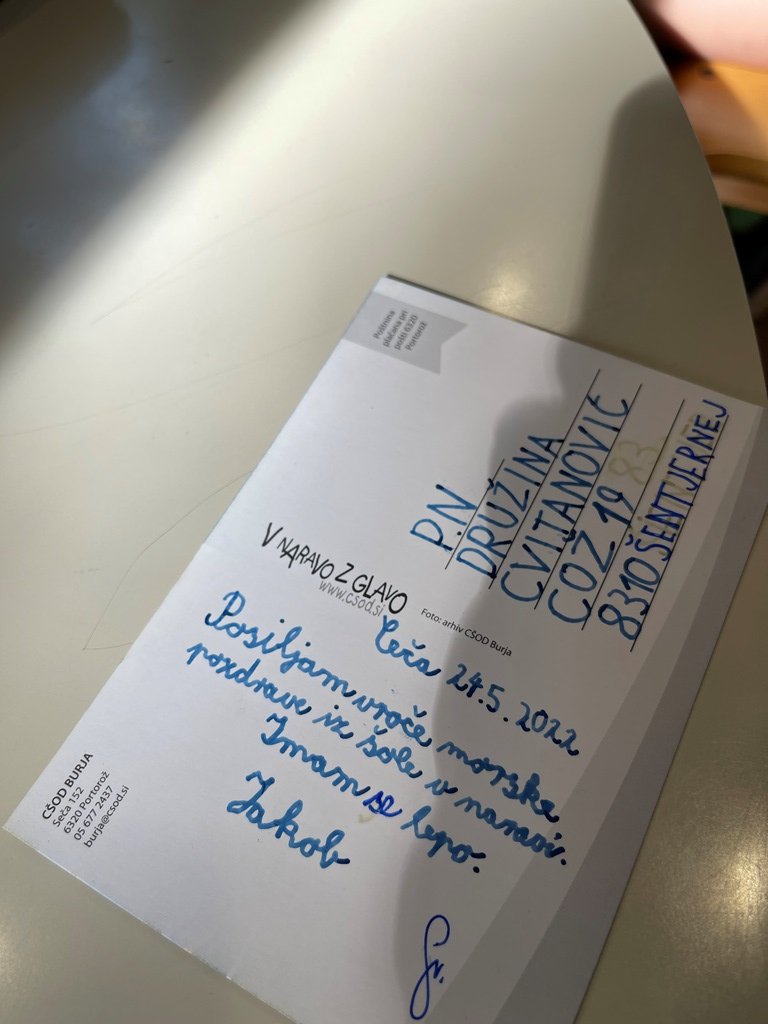 Poštnina
plačana pri
pošti 6320
Portorož
P.N
DRUŽINA
CVITANOVIČ
COŽ 19
8310 ŠENTJERNEJ
V NARAVO Z GLAVO
www.csod.si
Foto: arhiv CŠOD Burja
Seča 24.5.2022
Posiljam vroče morske
pozdrave iz šole v naravi.
Imam se lepo.
Jakob
CŠOD BURJA
Seča 152
6320 Portorož
05 677 2437
burja@csod.si